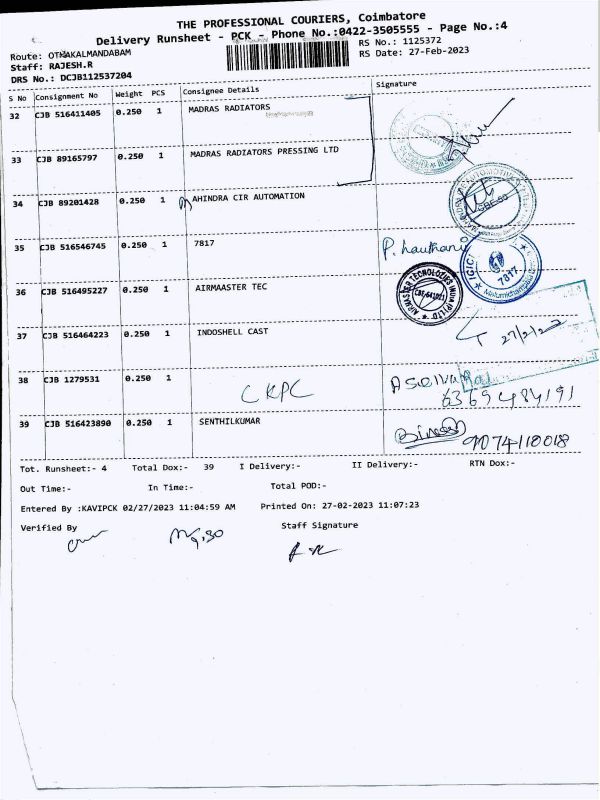 THE PROFESSIONAL COURIERS, Coimbatore
Delivery Runsheet - PCK - Phone No.:0422-3505555 - Page No.:4
Route: OTHAKALMANDABAM
RS No.: 1125372
Staff: RAJESH.R
RS Date: 27-Feb-2023
DRS No.: DCJB112537204
S No Consignment No Weight PCS Consignee Details Signature
32 CJB 516411405 0.250 1 MADRAS RADIATORS
33 CJB 89165797 0.250 1 MADRAS RADIATORS PRESSING LTD
34 CJB 89201428 0.250 1 M AHINDRA CIR AUTOMATION
CBE-50
35 CJB 516546745 0.250 1 7817
ICICI
7817
36 CJB 516495227 0.250 1 AIRMAASTER TEC
AIRMASTER TECNOLOZIES INDIA (P) LTD
CBE-641021
37 CJB 516464223 0.250 1 INDOSHELL CAST
27/2/
38 CJB 1279531 0.250 1 CKPC
6369484191
39 CJB 516423890 0.250 1 SENTHILKUMAR
9074110018
Tot. Runsheet:- 4 Total Dox:- 39 I Delivery:- II Delivery:- RTN Dox:-
Out Time:- In Time:- Total POD:-
Entered By :KAVIPCK 02/27/2023 11:04:59 AM Printed On: 27-02-2023 11:07:23
Verified By Staff Signature
9.30